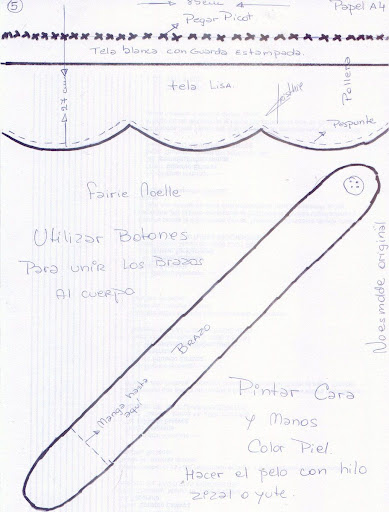 5
Papel A4
Pegar Picot
Tela blanca con Guarda estampada.
27 cm
tela Lisa.
Pollera
Pespunte
Fairie Noelle
Utilizar Botones
Para unir los Brazos
Al cuerpo
No es molde original
BRAZO
Manga hasta
aquí
Pintar Cara
y Manos
Color Piel.
Hacer el pelo con hilo
zizal o yute.